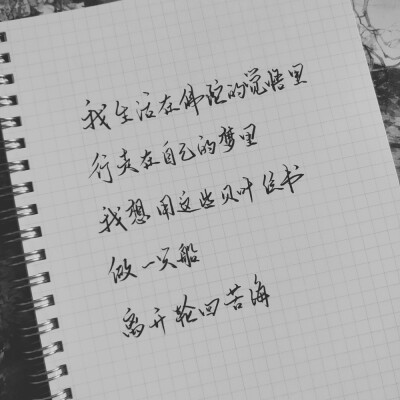 我生活在佛陀的觉悟里
行走在自己的梦里
我想用这些贝叶经书
做一只船
离开轮回苦海